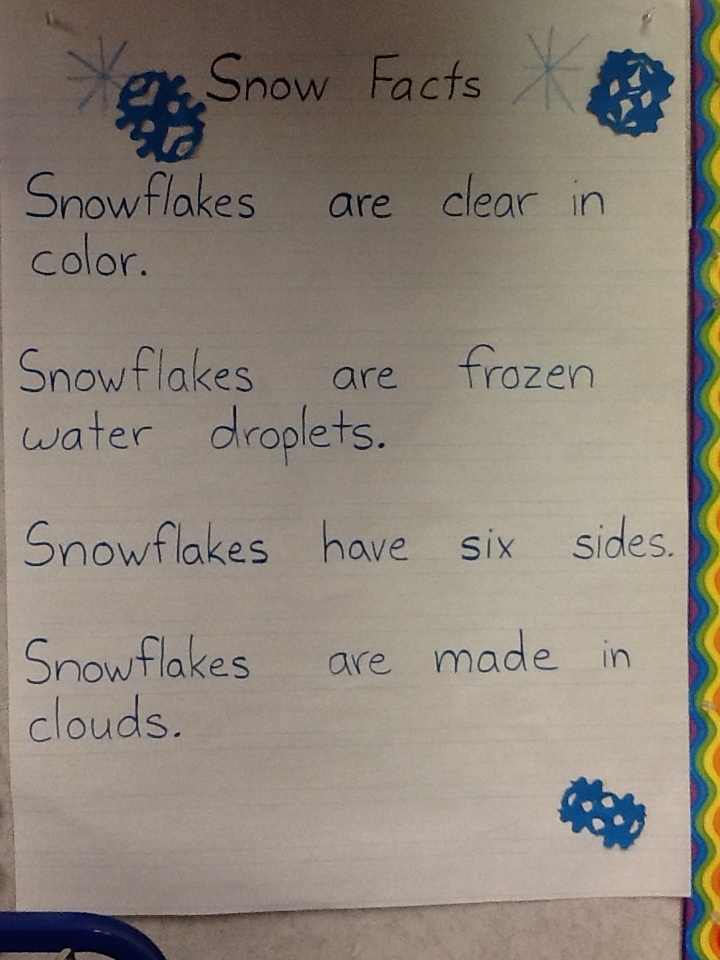 Snow Facts
Snowflakes are clear in
color.
Snowflakes are frozen
water droplets.
Snowflakes have six sides.
Snowflakes are made in
clouds.